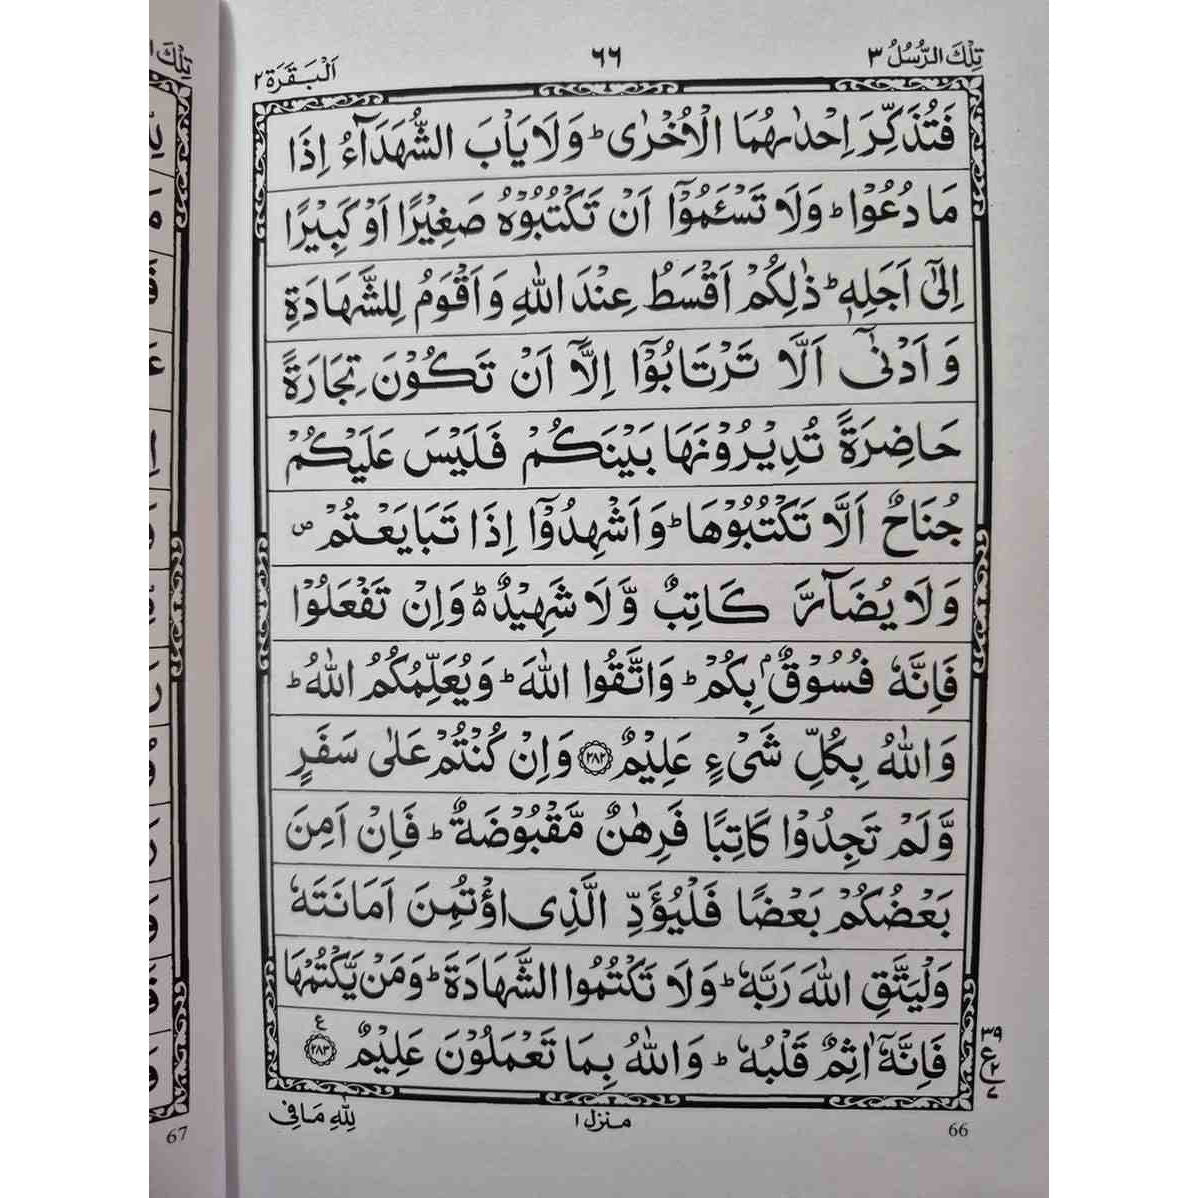 تِلْكَ الرُّسُلُ ٣
٦٦
اَلْبَقَرَة ٢
فَتُذَكِّرَ اِحْدٰىهُمَا الْاُخْرٰى ؕ وَلَا يَاْبَ الشُّهَدَآءُ اِذَا
مَا دُعُوْا ؕ وَلَا تَسْـَٔمُوْۤا اَنْ تَكْتُبُوْهُ صَغِيْرًا اَوْ كَبِيْرًا
اِلٰۤى اَجَلِهٖ ؕ ذٰلِكُمْ اَقْسَطُ عِنْدَ اللّٰهِ وَاَقْوَمُ لِلشَّهَادَةِ
وَاَدْنٰۤى اَلَّا تَرْتَابُوْۤا اِلَّاۤ اَنْ تَكُوْنَ تِجَارَةً
حَاضِرَةً تُدِيْرُوْنَهَا بَيْنَكُمْ فَلَيْسَ عَلَيْكُمْ
جُنَاحٌ اَلَّا تَكْتُبُوْهَا ؕ وَاَشْهِدُوْۤا اِذَا تَبَايَعْتُمْ ۪
وَلَا يُضَآرَّ كَاتِبٌ وَّلَا شَهِيْدٌ ؕ۬ وَاِنْ تَفْعَلُوْا
فَاِنَّهٗ فُسُوْقٌۢ بِكُمْ ؕ وَاتَّقُوا اللّٰهَ ؕ وَيُعَلِّمُكُمُ اللّٰهُ ؕ
وَاللّٰهُ بِكُلِّ شَىْءٍ عَلِيْمٌ ﴿٢٨٢﴾ وَاِنْ كُنْتُمْ عَلٰى سَفَرٍ
وَّلَمْ تَجِدُوْا كَاتِبًا فَرِهٰنٌ مَّقْبُوْضَةٌ ؕ فَاِنْ اَمِنَ
بَعْضُكُمْ بَعْضًا فَلْيُؤَدِّ الَّذِى اؤْتُمِنَ اَمَانَتَهٗ
وَلْيَتَّقِ اللّٰهَ رَبَّهٗ ؕ وَلَا تَكْتُمُوا الشَّهَادَةَ ؕ وَمَنْ يَّكْتُمْهَا
فَاِنَّهٗۤ اٰثِمٌ قَلْبُهٗ ؕ وَاللّٰهُ بِمَا تَعْمَلُوْنَ عَلِيْمٌ ﴿٢٨٣﴾ ع
٣٩
ع
منزل ١
لِلّٰهِ مَا فِى
66
67